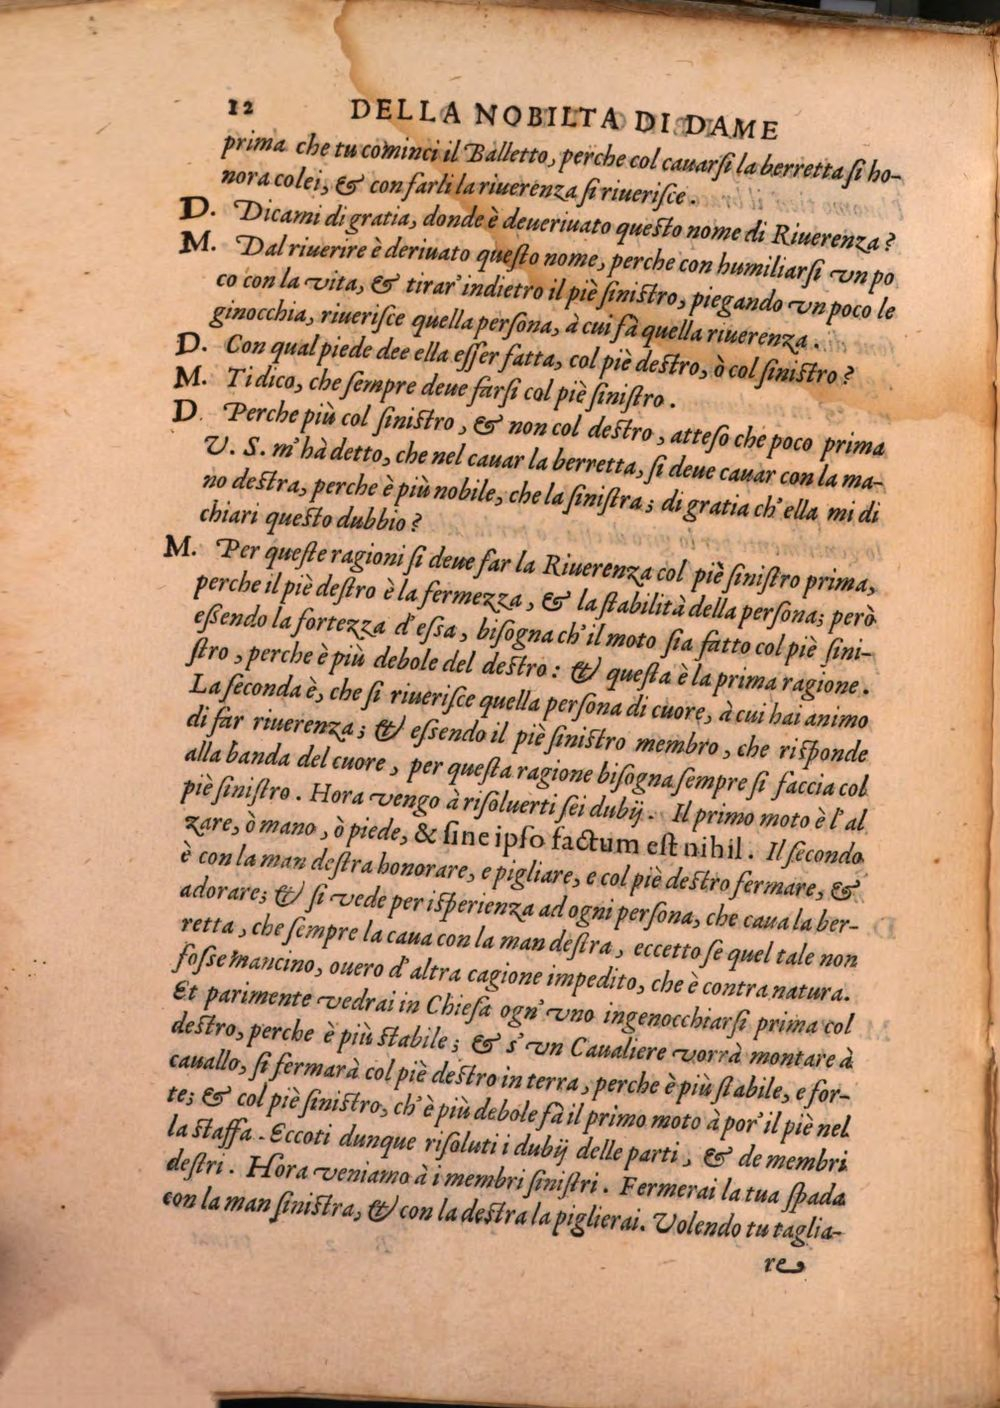 12 DELLA NOBILTA DI DAME
prima che tu cominci il Balletto, perche col cauarſi la berretta ſi ho-
nora colei, & con farli la riuerenza ſi riueriſce.
D. Dicami di gratia, donde è deueriuato queſto nome di Riuerenza?
M. Dal riuerire è deriuato queſto nome, perche con humiliarſi vn po
co con la vita, & tirar' indietro il piè ſiniſtro, piegando vn poco le
ginocchia, riueriſce quella perſona, à cui fà quella riuerenza.
D. Con qual piede dee ella eſſer fatta, col piè deſtro, ò col ſiniſtro?
M. Ti dico, che ſempre deue farſi col piè ſiniſtro.
D. Perche più col ſiniſtro, & non col deſtro, atteſo che poco prima
V. S. m'hà detto, che nel cauar la berretta, ſi deue cauar con la ma-
no deſtra, perche è più nobile, che la ſiniſtra; di gratia ch'ella mi di
chiari queſto dubbio?
M. Per queſte ragioni ſi deue far la Riuerenza col piè ſiniſtro prima,
perche il piè deſtro è la fermezza, & la ſtabilità della perſona; però
eßendo la fortezza d'eſsa, biſogna ch'il moto ſia fatto col piè ſini-
ſtro, perche è più debole del deſtro: & queſta è la prima ragione.
La ſeconda è, che ſi riueriſce quella perſona di cuore, à cui hai animo
di far riuerenza; & eſsendo il piè ſiniſtro membro, che riſponde
alla banda del cuore, per queſta ragione biſogna ſempre ſi faccia col
piè ſiniſtro. Hora vengo à riſoluerti ſei dubij. Il primo moto è l'al
zare, ò mano, ò piede, & ſine ipſo factum eſt nihil. Il ſecondo
è con la man deſtra honorare, e pigliare, e col piè deſtro fermare, &
adorare; & ſi vede per iſperienza ad ogni perſona, che caua la ber-
retta, che ſempre la caua con la man deſtra, eccetto ſe quel tale non
foſse mancino, ouero d'altra cagione impedito, che è contra natura.
Et parimente vedrai in Chieſa ogn' vno ingenocchiarſi prima col
deſtro, perche è più ſtabile; & s' vn Caualiere vorrà montare à
cauallo, ſi fermarà col piè deſtro in terra, perche è più ſtabile, e for-
te; & col piè ſiniſtro, ch'è più debole fà il primo moto à por' il piè nel
la ſtaffa. Eccoti dunque riſoluti i dubij delle parti, & de membri
deſtri. Hora veniamo à i membri ſiniſtri. Fermerai la tua ſpada
con la man ſiniſtra, & con la deſtra la piglierai. Volendo tu taglia-
re